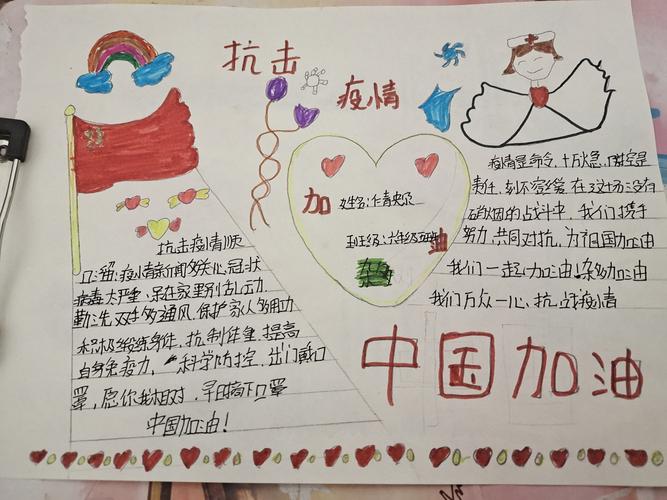 抗击
疫情
加
姓名:
班级:六年级
油
抗击疫情顺
口溜:疫情新闻多关心,冠状
病毒太严重,呆在家里别乱动
勤洗双手多通风,保护家人多用功
积极锻练身体,抗制体重,提高
自身免疫力,科学防控,出门戴口
罩,愿你我相对,早日摘下口罩
中国加油!
疫情是命令,十万火急,防控是
责任,刻不容缓,在这场没有
硝烟的战斗中,我们携手
努力,共同对抗,为祖国加油
我们一起加油!加油
我们万众一心,抗战疫情
中国加油